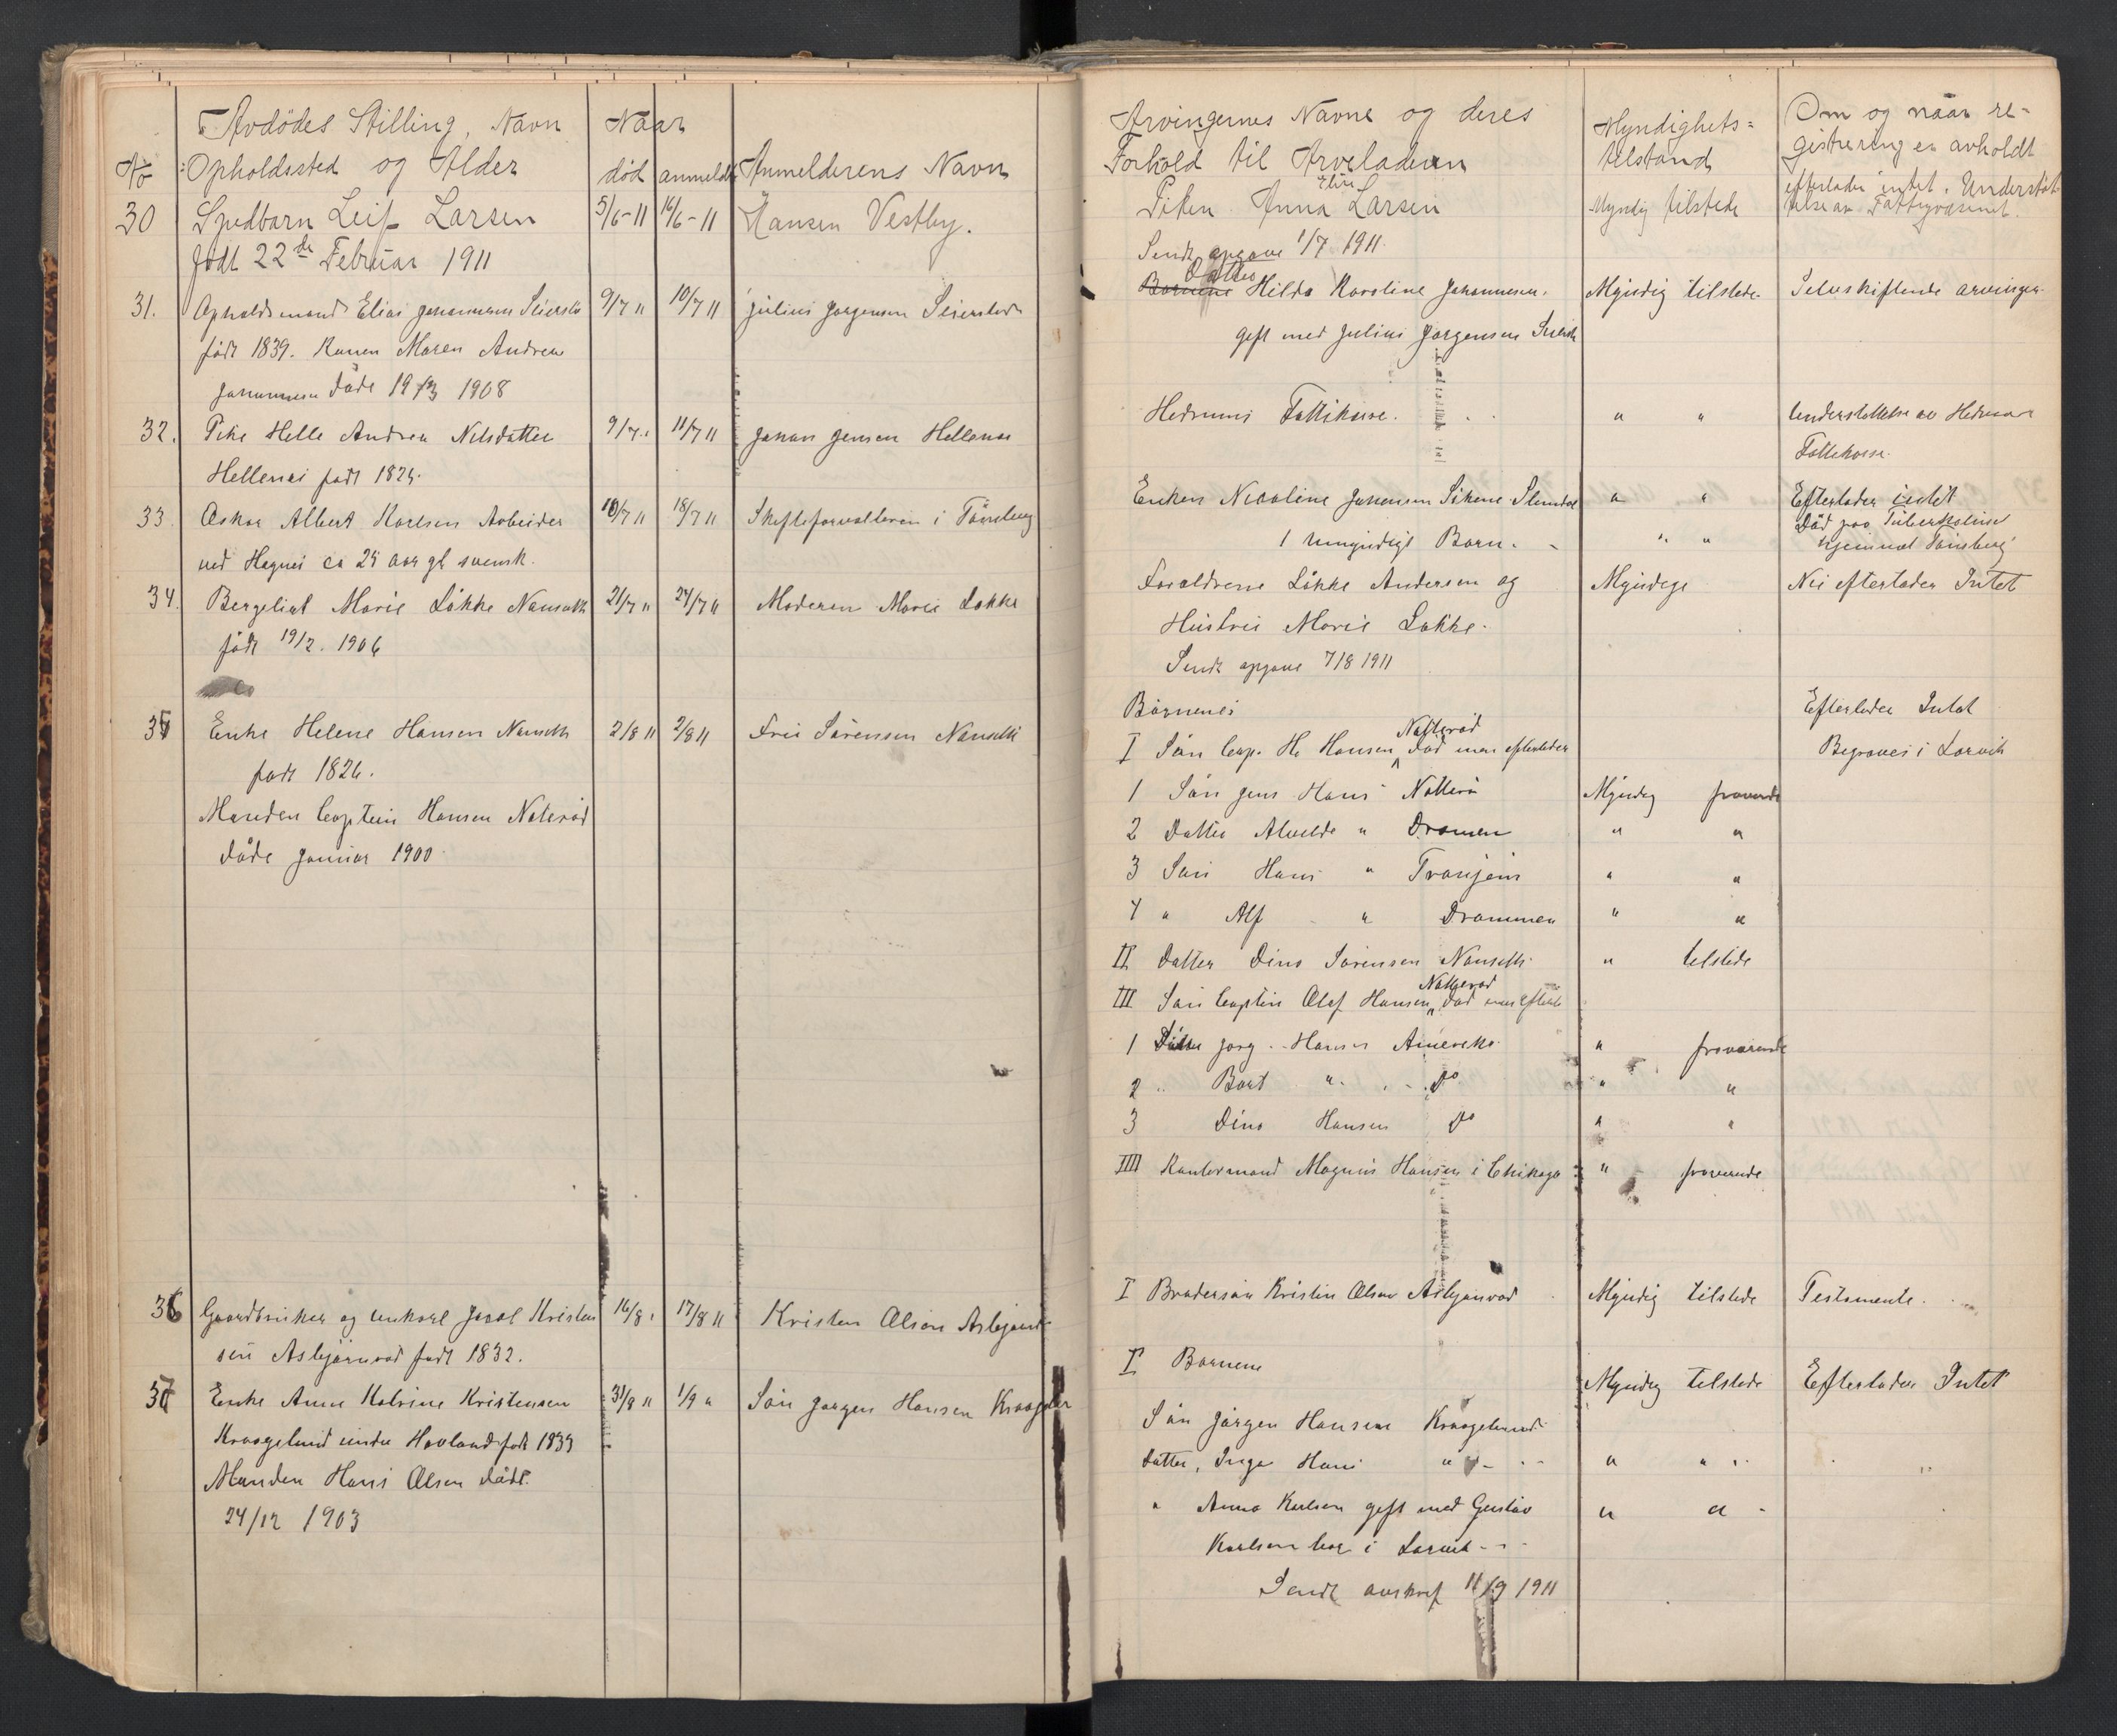 Avdödes Stilling, Navn
Opholdssted og Alder
No
Naar
död anmeldt
Anmelderens Navn
30 Spedbarn Leif Larsen 5/6-11 16/6-11 Hansen Vestby.
født 22de Februar 1911
31. Opholdsmand Elias Johannesen 9/7 11 10/7 11 Julius Jørgensen Seierstad
født 1839. Konen Maren Andrea
Johannesen døde 1908
32. Pike Helle Andrea Nilsdatter 9/7 11/7 11 Johan Jensen Hellenes
Hellenes født
33 Oskar Albert Karlsen Arbeider 10/7 11 18/7 11 Skifteforvalteren i Tönsberg
ved Hagnes ca 25 aar gl svensk.
34. Bergeliot Marie Løkke Nanseth 21/7 11 24/7 11 Moderen Marie Løkke
født 19/2. 1906
35 Enke Helene Hansen Nanseth 2/8 11 2/8 11 Fru Sørensen Nanseth
født 1826.
Manden Captein Hansen Nøterød
døde Januar 1900
36 Gaardbruker og unkarl Jacob Kristen 16/8 17/8 11 Kristen Olsen
sen Asbjørnrød født 1832.
37 Enke Anne Katrine Kristensen 31/8 11 1/9 " Søn Jørgen Hansen
Kraagelund under Hovland født
Manden Hans Olsen døde
24/12 1903
Arvingernes Navne og deres
Forhold til Arveladeren
Myndighets=
tilstand
Om og naar re-
gistrering er avholdt
Piken Anna Elise Larsen Myndig tilstede efterlader intet. Understøt-
telse av Fattigvæsenet.
Sendt opgave 1/7 1911.
Datter
Børnene Hilda Karoline Johannesen. Myndig tilstede Selvskiftende arvinger
gift med Julius Jørgensen
Hedrums Fattikasse. " " Understøttelse av Hedrum
Fattikasse.
Enken Nicoline Johansen " " Efterlader intet
Død paa Tuberkuløse
1 umyndigt Barn. " " hjemmet Tønsberg
Foreldrene Løkke Andersen og Myndige Nei efterlader Intet
Hustru Marie Løkke.
Sendt opgave 7/8 1911
Børnene: Efterlader Intet
Nøtterød
I Søn Cap. H. Hansen, død men efterlader Begraves i Larvik
1 Søn Jens Hans Nøtterø Myndig fraværende
2 Datter " Dramen " "
3 Søn Hans " " "
4 " Alf " Drammen " "
II Datter Dina Sørensen Nanseth " tilstede
Nøtterød
III Søn Captein Olaf Hansen, død men
1 Jørg. Hansen Amerika " fraværende
2 " " do " "
3 Dina Hansen do " "
IIII Kontormand Magnus Hansen i Chikago " fraværende
I Brodersøn Kristen Olsen Asbjønrød Myndig tilstede Testamente.
I Børnene Myndig tilstede Efterlader Intet
Søn Jørgen Hansen Kraagelund
Datter, Inga Hans " " "
" Anna Karlsen gift med Gustav " "
Karlsen bor i Larvik
Sendt avskrif 11/9 1911